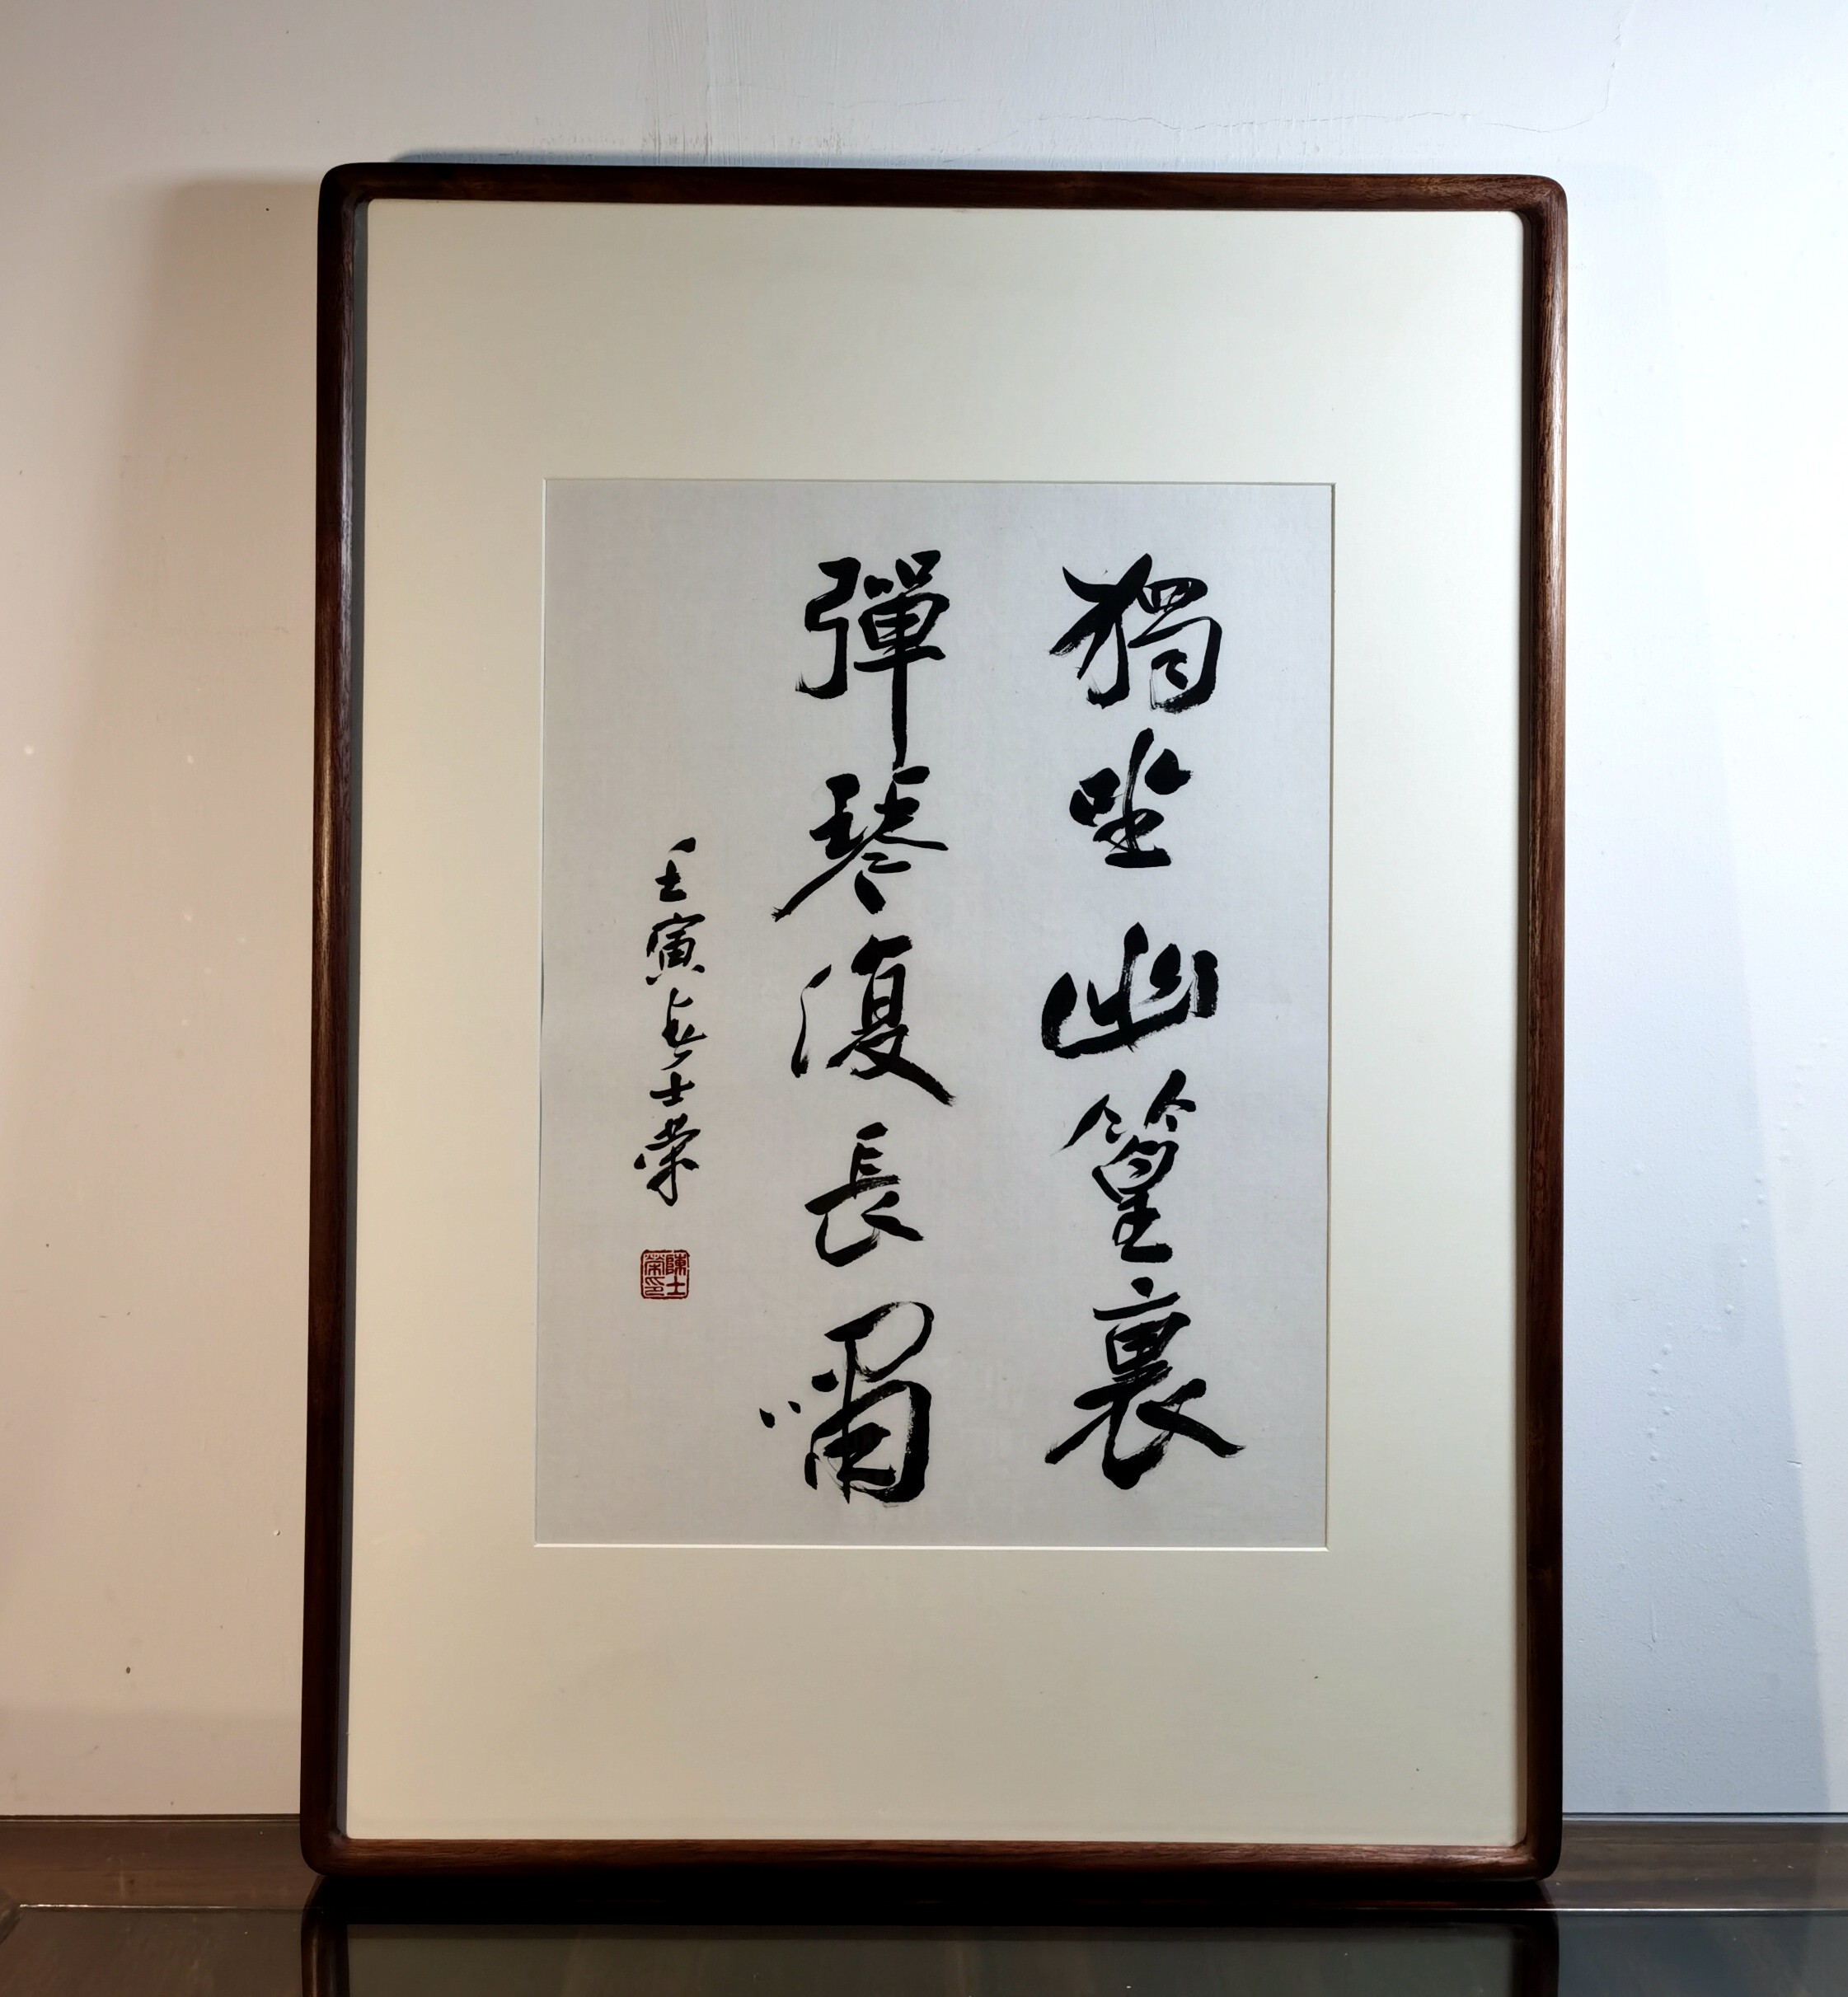 獨坐幽篁裏
彈琴復長嘯
壬寅春士榮
陳士榮印